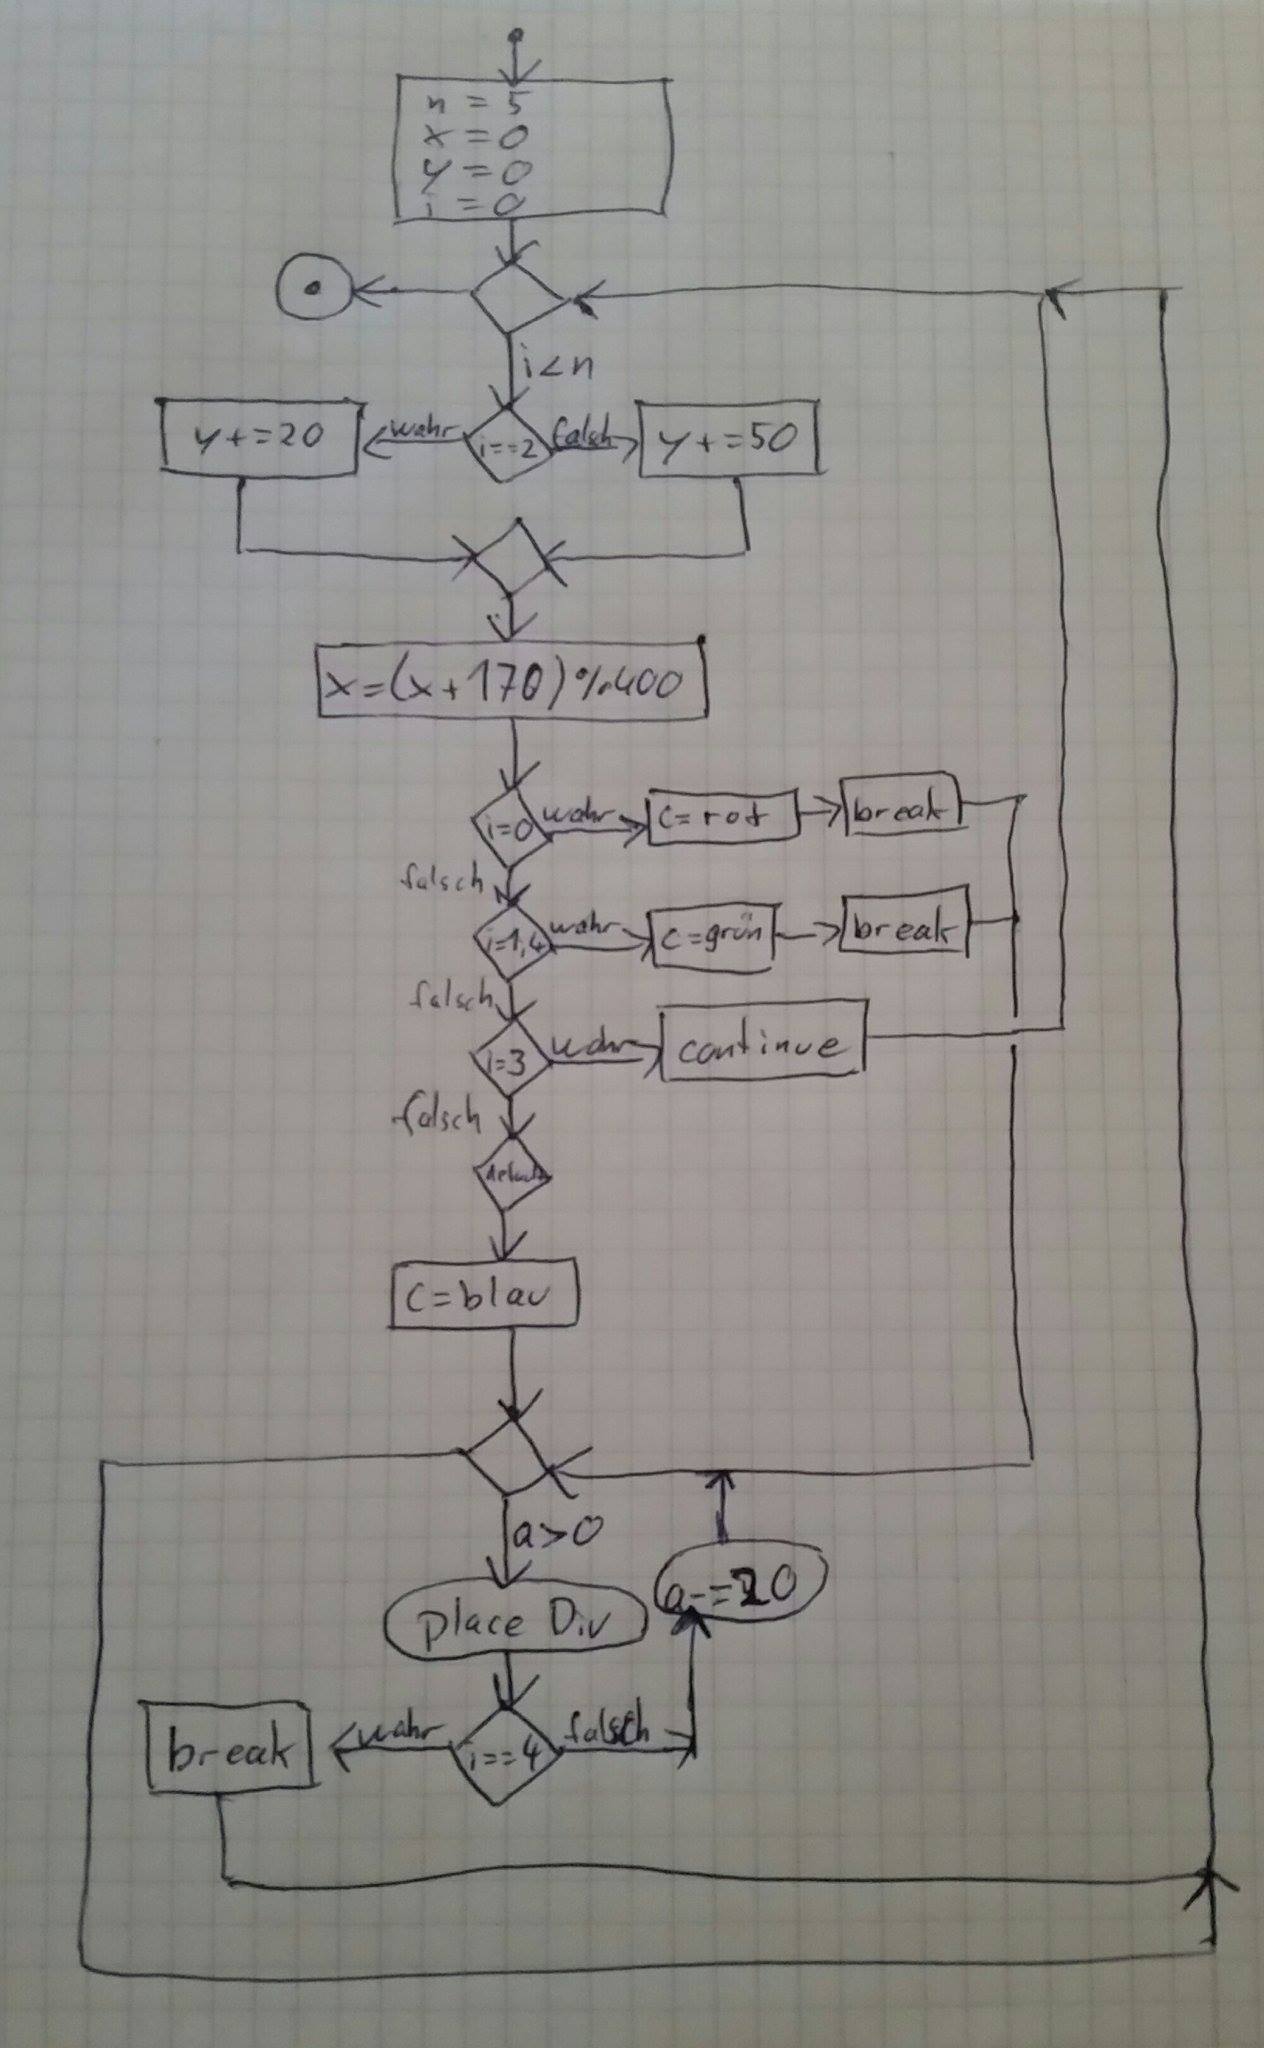 n = 5
x = 0
y = 0
i = 0
i<n
y+=20
wahr
i==2
falsch
y+=50
x=(x+170)%400
i=0
wahr
c=rot
break
falsch
i=1,4
wahr
c=grün
break
falsch
i=3
wahr
continue
falsch
c=blau
a>0
place Div
break
wahr
i==4
falsch